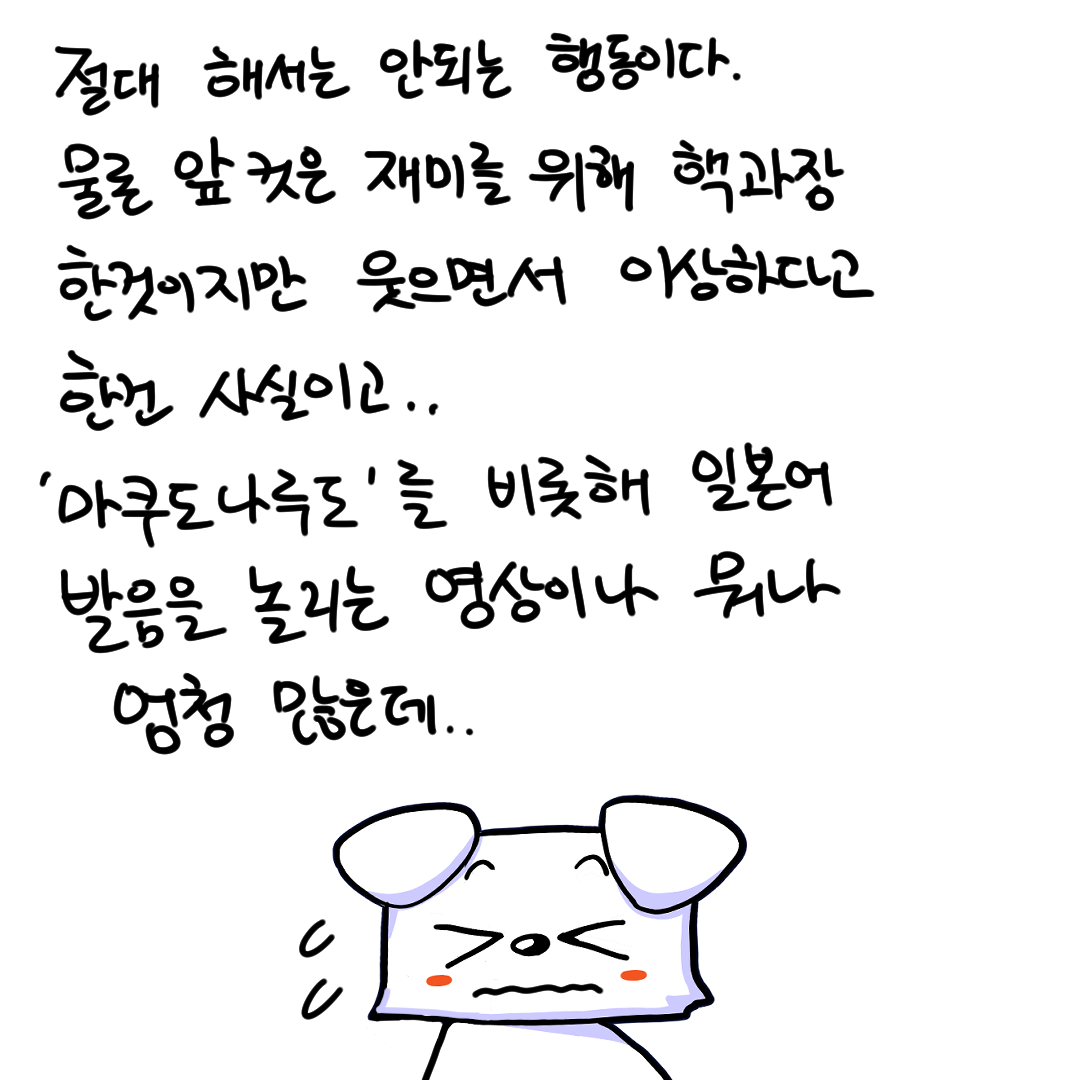 절대 해서는 안되는 행동이다.
물론 앞 컷은 재미를 위해 핵과장
한것이지만 웃으면서 이상하다고
한건 사실이고..
'마쿠도나루도'를 비롯해 일본어
발음을 놀리는 영상이나 뭐나
엄청 많은데..